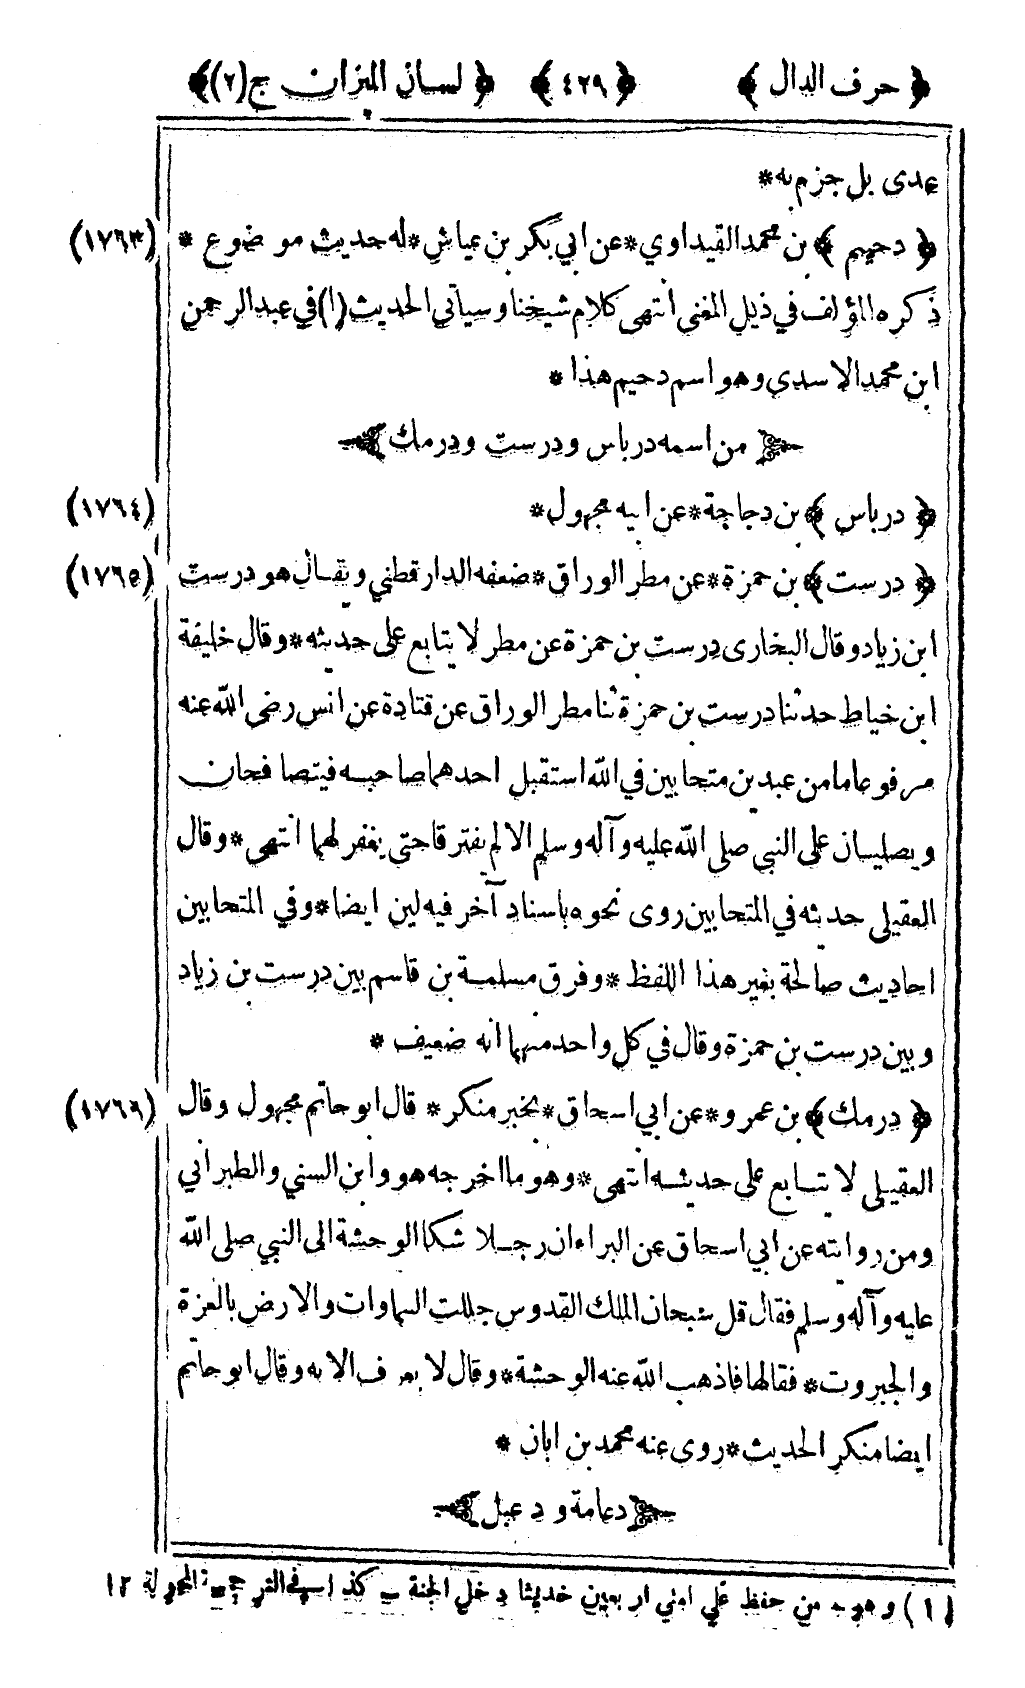 ﴿ حرف الدال ﴾ ﴿ ٤٢٩ ﴾ ﴿ لسان الميزان ج(٢)﴾
عدى بل جزم به*
﴿ دحيم ﴾ بن محمد القيداوي*عن ابي بكر بن عياش*له حديث موضوع * (١٧٦٣)
ذكره المؤلف في ذيل المغنى انتهى كلام شيخنا وسيأتي الحديث(١)في عبد الرحمن
ابن محمد الاسدي وهو اسم دحيم هذا *
من اسمه درباس ودرست ودرمك
﴿ درباس ﴾ بن دجاجة*عن ابيه مجهول* (١٧٦٤)
﴿ درست ﴾ بن حمزة*عن مطر الوراق*ضعفه الدارقطني ويقال هو درست (١٧٦٥)
ابن زياد وقال البخارى درست بن حمزة عن مطر لا يتابع على حديثه*وقال خليفة
ابن خياط حدثنا درست بن حمزة ثنا مطر الوراق عن قتادة عن انس رضى الله عنه
مرفوعا ما من عبد بن متحابين في الله استقبل احدهما صاحبه فيتصافحان
ويصليان على النبي صلى الله عليه وآله وسلم الا لم يفترقا حتى يغفر لهما انتهى*وقال
العقيلى حديثه في المتحابين روى نحوه باسناد آخر فيه لين ايضا*وفي المتحابين
احاديث صالحة بغير هذا اللفظ*وفرق مسلمة بن قاسم بين درست بن زياد
وبين درست بن حمزة وقال في كل واحد منهما انه ضعيف *
﴿ درمك ﴾ بن عمرو*عن ابي اسحاق*بخبر منكر* قال ابو حاتم مجهول وقال (١٧٦٦)
العقيلى لا يتابع على حديثه انتهى*وهو ما اخرجه هو وابن السني والطبراني
ومن روايته عن ابي اسحاق عن البراء ان رجلا شكا الوحشة الى النبي صلى الله
عليه وآله وسلم فقال قل سبحان الملك القدوس جللت السماوات والارض بالعزة
والجبروت* فقالها فاذهب الله عنه الوحشة*وقال لا يعرف الا به وقال ابو حاتم
ايضا منكر الحديث*روى عنه محمد بن ابان *
دعامة ودعبل
(١) وهو من حفظ على امتي اربعين حديثا دخل الجنة كذا في الترجمة المحولة ١٢